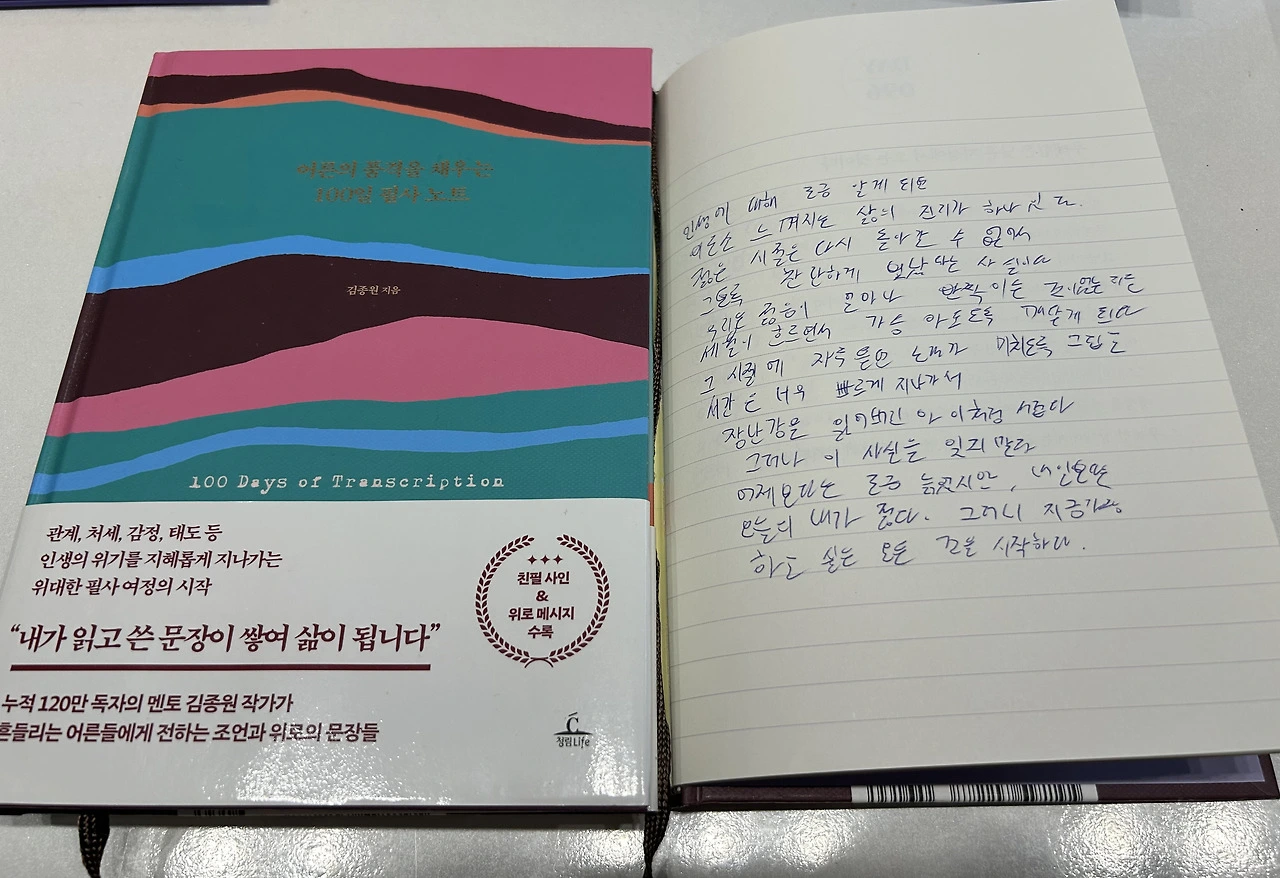 어른의 품격을 채우는
100일 필사 노트
김종원 지음
100 Days of Transcription
관계, 처세, 감정, 태도 등
인생의 위기를 지혜롭게 지나가는
위대한 필사 여정의 시작
“내가 읽고 쓴 문장이 쌓여 삶이 됩니다”
누적 120만 독자의 멘토 김종원 작가가
흔들리는 어른들에게 전하는 조언과 위로의 문장들
친필 사인
&
위로 메시지
수록
청림Life
인생에 대해 조금 알게 되면
비로소 느껴지는 삶의 진리가 하나 있다.
젊은 시절은 다시 돌아갈 수 없어서
그토록 찬란하게 빛났다는 사실이다
우리는 젊음이 얼마나 반짝이는 존재였는지는
세월이 흐르면서 가슴 아프도록 깨닫게 된다
그 시절에 자주 들었던 노래가 미치도록 그립고
시간은 너무 빠르게 지나가서
장난감을 잃어버린 아이처럼 서럽다
그러나 이 사실을 잊지 말라
어제보다는 조금 늙었지만, 내일보다
오늘의 내가 젊다. 그러니 지금 가장
하고 싶은 모든 것을 시작하라.